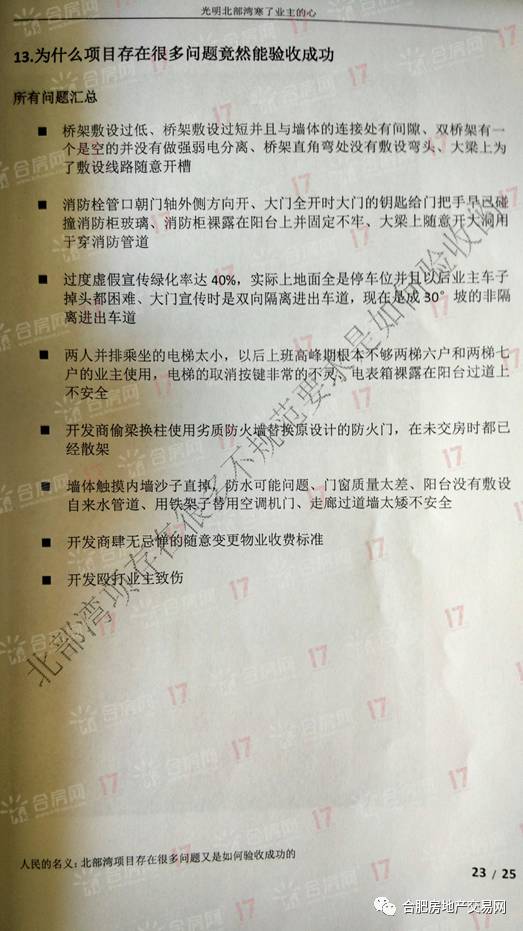 光明北部湾寒了业主的心
13.为什么项目存在很多问题竟然能验收成功
所有问题汇总
■ 桥架敷设过低、桥架敷设过短并且与墙体的连接处有间隙、双桥架有一
个是空的并没有做强弱电分离、桥架直角弯处没有敷设弯头、大梁上为
了敷设线路随意开槽
■ 消防栓管口朝门轴外侧方向开、大门全开时大门的钥匙给门把手早已碰
撞消防柜玻璃、消防柜裸露在阳台上并固定不牢、大梁上随意开大洞用
于穿消防管道
■ 过度虚假宣传绿化率达 40%，实际上地面全是停车位并且以后业主车子
掉头都困难、大门宣传时是双向隔离进出车道，现在是成 30° 坡的非隔
离进出车道
■ 两人并排乘坐的电梯太小，以后上班高峰期根本不够两梯六户和两梯七
户的业主使用，电梯的取消按键非常的不灵、电表箱裸露在阳台过道上
不安全
■ 开发商偷梁换柱使用劣质防火墙替换原设计的防火门，在未交房时都已
经散架
■ 墙体触摸内墙沙子直掉，防水可能问题、门窗质量太差、阳台没有敷设
自来水管道、用铁架子替用空调机门、走廊过道墙太矮不安全
■ 开发商肆无忌惮的随意变更物业收费标准
■ 开发殴打业主致伤
北部湾项存在很多不规范要求是如何验收的
人民的名义：北部湾项目存在很多问题又是如何验收成功的
23 / 25
合肥房地产交易网
合房网
17